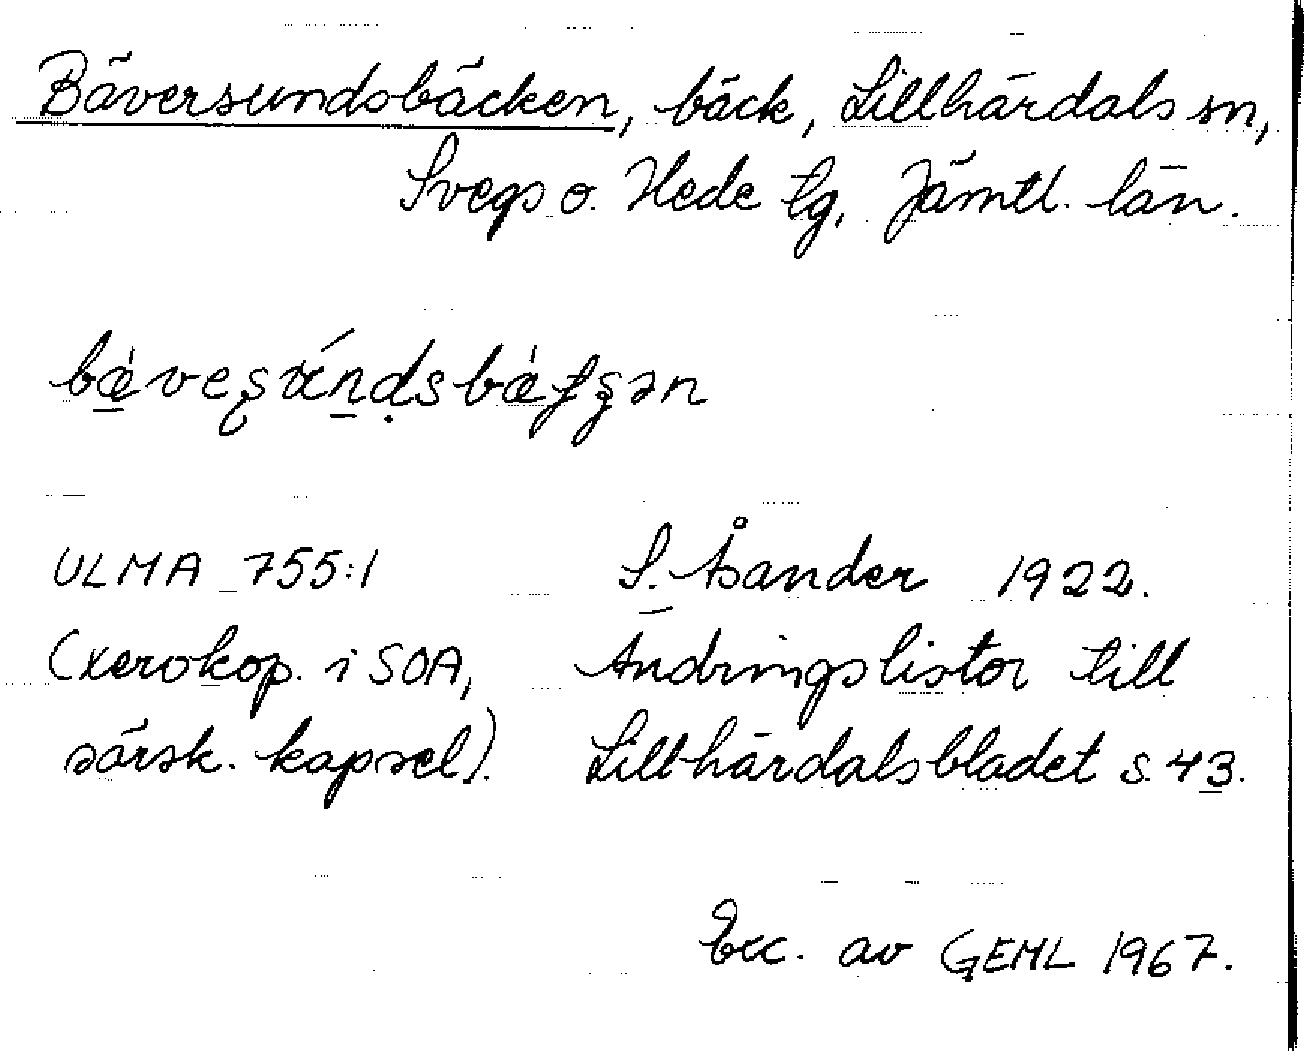 Bäversundsbäcken, bäck, Lillhärdals sn,
Svegs o. Hede tg, Jämtl. län.
ULMA 755:1 S. Åsander 1922.
(xerokop. i SOA, Ändringslistor till
särsk. kapsel). Lillhärdalsbladet s. 43.
Exc. av GEML 1967.